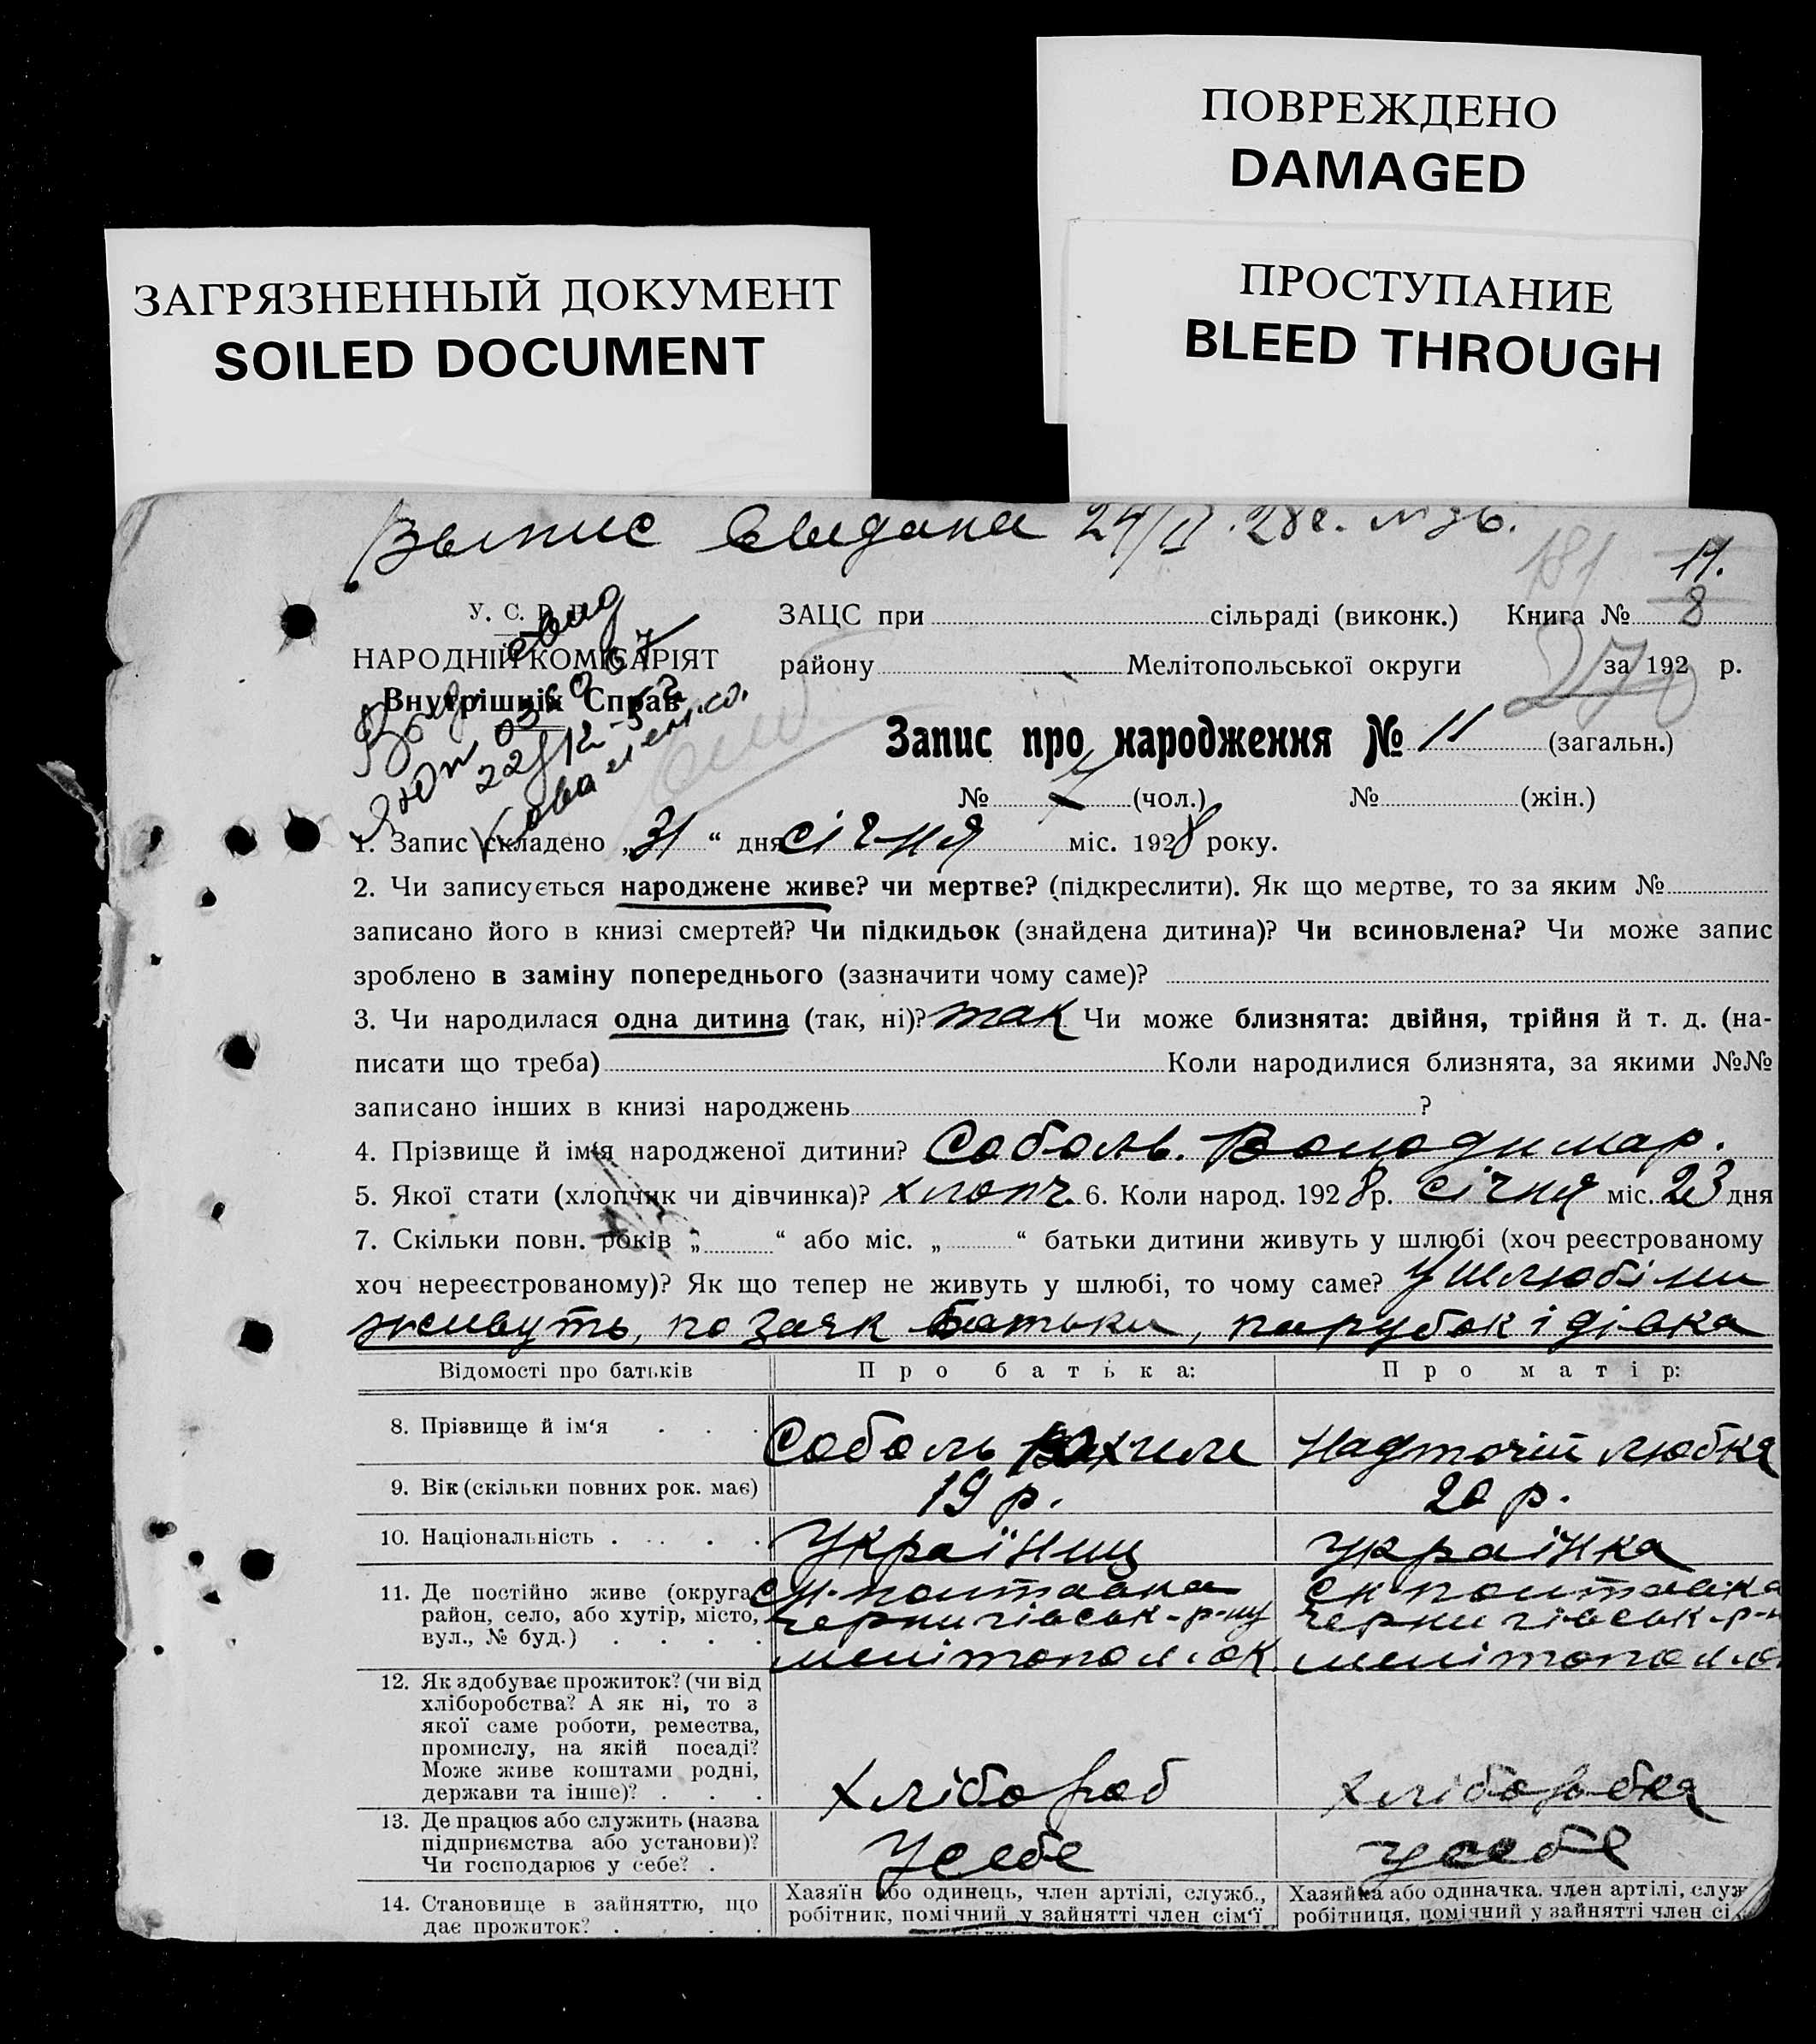 ПОВРЕЖДЕНО
DAMAGED
ЗАГРЯЗНЕННЫЙ ДОКУМЕНТ
SOILED DOCUMENT
ПРОСТУПАНИЕ
BLEED THROUGH
24/II. 28 г. № 36.
181 11.
У. С. Р. Р.
НАРОДНІЙ КОМІСАРІЯТ
Внутрішніх Справ
ЗАЦС при сільраді (виконк.) Книга № 8
району Мелітопольської округи за 192 р.
Запис про народження № 11 (загальн.)
№ 7 (чол.) № (жін.)
1. Запис складено „31“ дня січня міс. 1928 року.
2. Чи записується народжене живе? чи мертве? (підкреслити). Як що мертве, то за яким №
записано його в книзі смертей? Чи підкидьок (знайдена дитина)? Чи всиновлена? Чи може запис
зроблено в заміну попереднього (зазначити чому саме)?
3. Чи народилася одна дитина (так, ні)? так Чи може близнята: двійня, трійня й т. д. (на-
писати що треба) Коли народилися близнята, за якими №№
записано інших в книзі народжень ?
4. Прізвище й ім‘я народженої дитини? Соболь. Володимар.
5. Якої стати (хлопчик чи дівчинка)? хлопч. 6. Коли народ. 1928 р. січня міс. 23 дня
7. Скільки повн. років „ “ або міс. „ “ батьки дитини живуть у шлюбі (хоч реєстрованому
хоч нереєстрованому)? Як що тепер не живуть у шлюбі, то чому саме? У шлюбі ни
живуть, по заяк батьки, парубок і дівка
Відомості про батьків Про батька: Про матір:
8. Прізвище й ім‘я Соболь Надточій Любка
9. Вік (скільки повних рок. має) 19 р. 20 р.
10. Національність Україниц Українка
11. Де постійно живе (округа, район, село, або хутір, місто, вул., № буд.)
Полтавка
Чернигівськ-р-ну
мелітопол. ок.
Полтавка
Чернигівськ-р-н
мелітопол. ок
12. Як здобуває прожиток? (чи від
хліборобства? А як ні, то з
якої саме роботи, ремества,
промислу, на якій посаді?
Може живе коштами родні,
держави та інше)? Хлібороб Хліборобка
13. Де працює або служить (назва
підприємства або установи)?
Чи господарює у себе? Усебе усебе
14. Становище в зайняттю, що
дає прожиток?
Хазяїн або одинець, член артілі, служб.,
робітник, помічний у зайнятті член сім‘ї
Хазяйка або одиначка, член артілі, служ
робітниця, помічний у зайнятті член сі